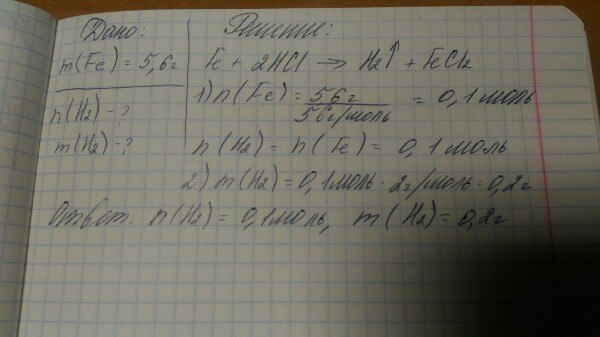 Дано:
m(Fe) = 5,6г
n(H₂) - ?
m(H₂) - ?
Решение:
Fe + 2HCl → H₂↑ + FeCl₂
1) n(Fe) = 5,6г / 56г/моль = 0,1 моль
n(H₂) = n(Fe) = 0,1 моль
2) m(H₂) = 0,1моль · 2г/моль = 0,2г
Ответ: n(H₂) = 0,1моль, m(H₂) = 0,2г